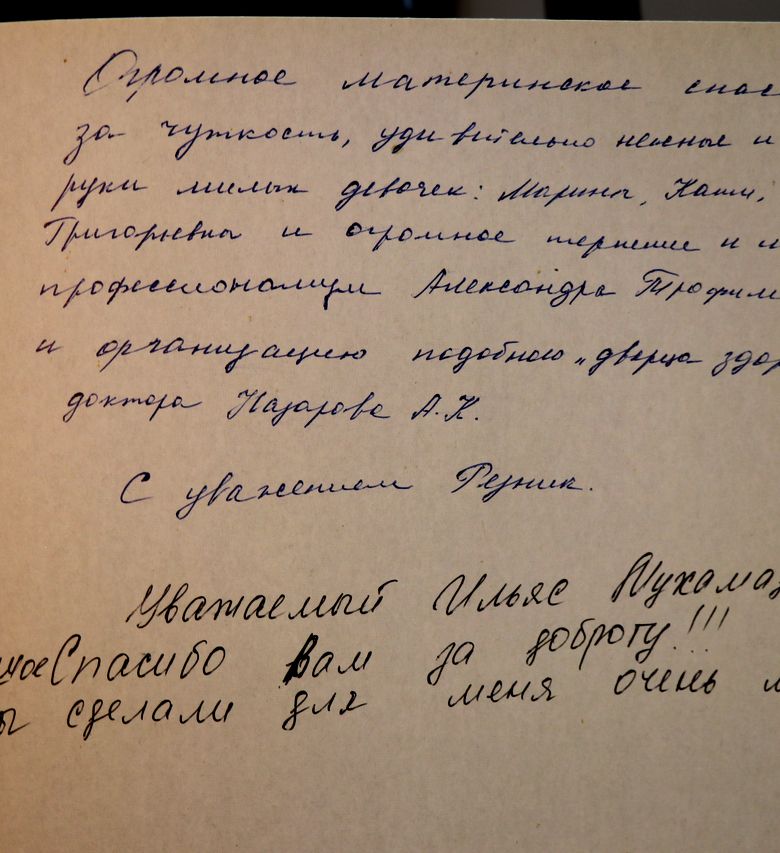 Огромное материнское спас
за чуткость, удивительно нежные и
руки милых девочек: Марины, Кати,
Григорьевна и огромное терпение и
профессионализм Александра Трофим
и организацию подобного „дворца здор
доктора Назарова А.К.
С уважением Резник.
Уважаемый Ильяс Мухама
мое Спасибо Вам за доброту!!!
ы сделали для меня очень м